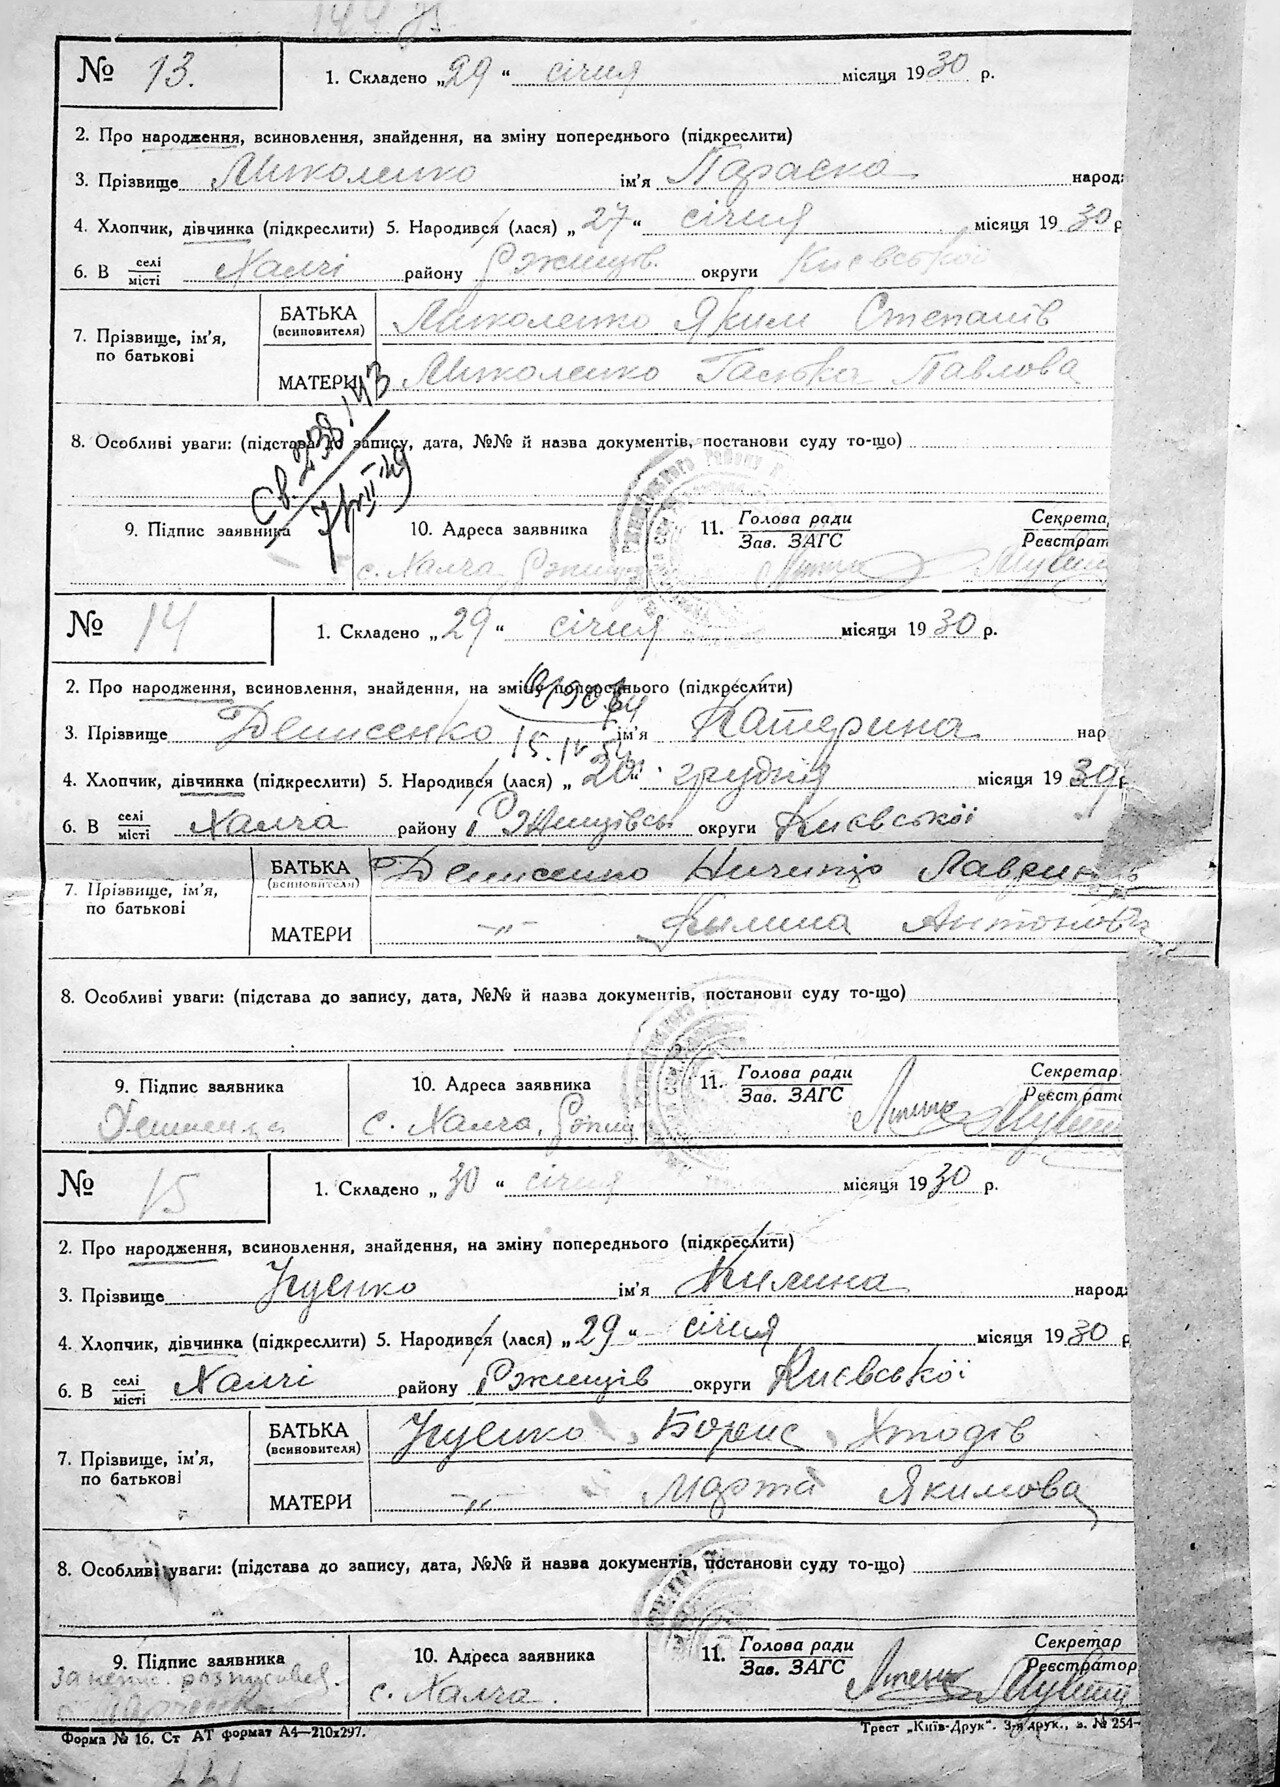 № 13. 1. Складено „29“ січня місяця 1930 р.
2. Про народження, всиновлення, знайдення, на зміну попереднього (підкреслити)
3. Прізвище Миколенко ім'я Параска народ
4. Хлопчик, дівчинка (підкреслити) 5. Народився (лася) „27“ січня місяця 1930 р
6. В селі/місті Халчі району Ржищів. округи Києвської
7. Прізвище, ім'я, по батькові
БАТЬКА (всиновителя) Миколенко Яким Степанів
МАТЕРИ Миколенко Гапка Павлова
Св. 238143
8. Особливі уваги: (підстава до запису, дата, №№ й назва документів, постанови суду то-що)
9. Підпис заявника 10. Адреса заявника 11. Голова ради Секрета
Зав. ЗАГС Реєстрат
с. Халча
№ 14 1. Складено „29“ січня місяця 1930 р.
2. Про народження, всиновлення, знайдення, на зміну попереднього (підкреслити)
3. Прізвище Денисенко ім'я Катерина нар
4. Хлопчик, дівчинка (підкреслити) 5. Народився (лася) „20“ грудня місяця 19
6. В селі/місті Халча району Ржищівсь округи Києвської
7. Прізвище, ім'я, по батькові
БАТЬКА (всиновителя) Денисенко Ничипір
МАТЕРИ —„— Килина Антонова
8. Особливі уваги: (підстава до запису, дата, №№ й назва документів, постанови суду то-що)
9. Підпис заявника 10. Адреса заявника 11. Голова ради Секретар
Зав. ЗАГС Реєстрато
с. Халча,
№ 15 1. Складено „30“ січня місяця 1930 р.
2. Про народження, всиновлення, знайдення, на зміну попереднього (підкреслити)
3. Прізвище Куценко ім'я Килина народ
4. Хлопчик, дівчинка (підкреслити) 5. Народився (лася) „29“ січня місяця 1930 р
6. В селі/місті Халчі району Ржищів округи Києвської
7. Прізвище, ім'я, по батькові
БАТЬКА (всиновителя) Куценко Борис
МАТЕРИ —„— Марта Якимова
8. Особливі уваги: (підстава до запису, дата, №№ й назва документів, постанови суду то-що)
9. Підпис заявника 10. Адреса заявника 11. Голова ради Секретар
Зав. ЗАГС Реєстратор
за непис. розписався с. Халча.
Форма № 16. Ст АТ формат А4—210х297. Трест „Київ-Друк“. 3-я друк., з. № 254-